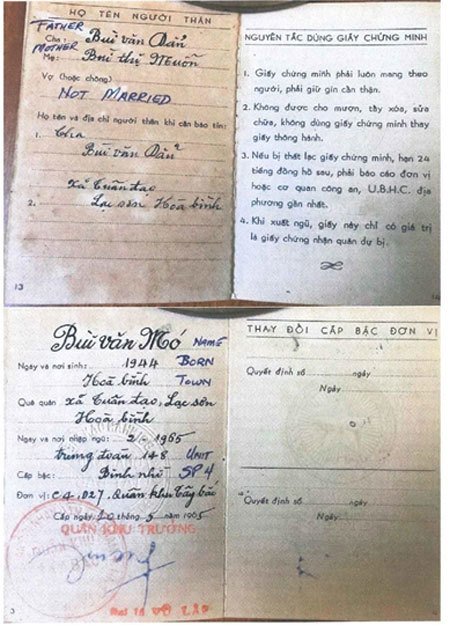 HỌ TÊN NGƯỜI THÂN
FATHER
Cha: Bùi văn Dần
MOTHER
Mẹ: Bùi thị Nguồn
Vợ (hoặc chồng)
NOT MARRIED
Họ tên và địa chỉ người thân khi cần báo tin:
1. Cha
Bùi văn Dần
xã Tuân đạo
2. Lạc sơn Hoà bình
13
NGUYÊN TẮC DÙNG GIẤY CHỨNG MINH
1. Giấy chứng minh phải luôn mang theo
người, phải giữ gìn cẩn thận.
2. Không được cho mượn, tẩy xóa, sửa
chữa, không dùng giấy chứng minh thay
giấy thông hành.
3. Nếu bị thất lạc giấy chứng minh, hạn 24
tiếng đồng hồ sau, phải báo cáo đơn vị
hoặc cơ quan công an, U.B.H.C. địa
phương gần nhất.
4. Khi xuất ngũ, giấy này chỉ có giá trị
là giấy chứng nhận quân dự bị.
Bùi văn Mó NAME
Ngày và nơi sinh: 1944 BORN
Hoà bình TOWN
Quê quán xã Tuân đạo, Lạc sơn
Hoà bình
Ngày và nơi nhập ngũ: 2/1965
trung đoàn 148 UNIT
Cấp bậc: Binh nhì SP4
Đơn vị: C4, D27, Quân khu Tây bắc
Cấp ngày 20 tháng 5 năm 1965
QUÂN KHU TRƯỞNG
3
THAY ĐỔI CẤP BẬC ĐƠN VỊ
Quyết định số ngày
Ngày
Quyết định số ngày
Ngày